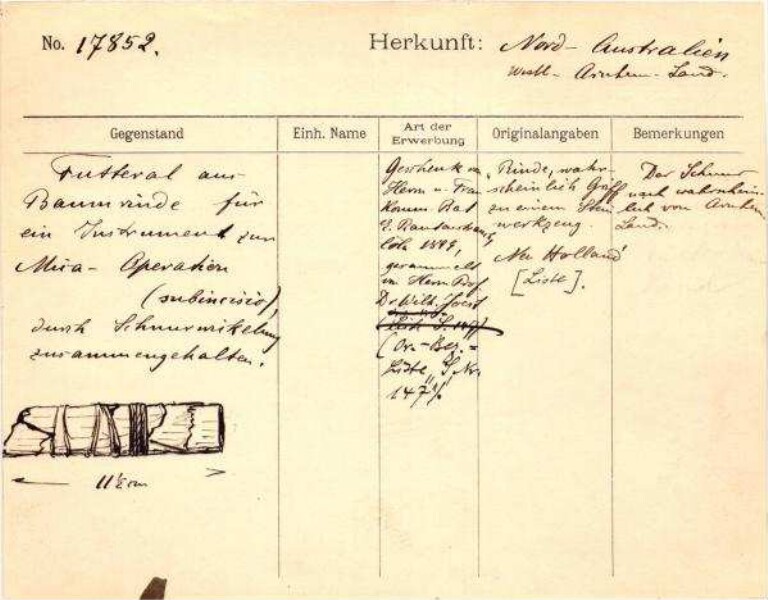 No. 17852.
Herkunft: Nord-Australien
Westl-Arnhem-Land.
Gegenstand
Einh. Name
Art der Erwerbung
Originalangaben
Bemerkungen
Futteral aus
Baumrinde für
ein Instrument zur
Mica-Operation
(subincisio),
durch Schnurwickelung
zusammengehalten.
11½ cm
Geschenk von
Herrn u. Frau
Komm. Rat
E. Rautenstrauch
Köln 1899,
gesammelt
von Herrn Prof.
Dr. Wilh. Joest
(Or.-Bez.=
Liste, S. Nr.
"Rinde, wahr-
scheinlich Griff
zu einem Stein
werkzeug.
Neu Holland"
[Liste].
Der Schnur
nach wahrschein-
lich von Arnhem
Land.